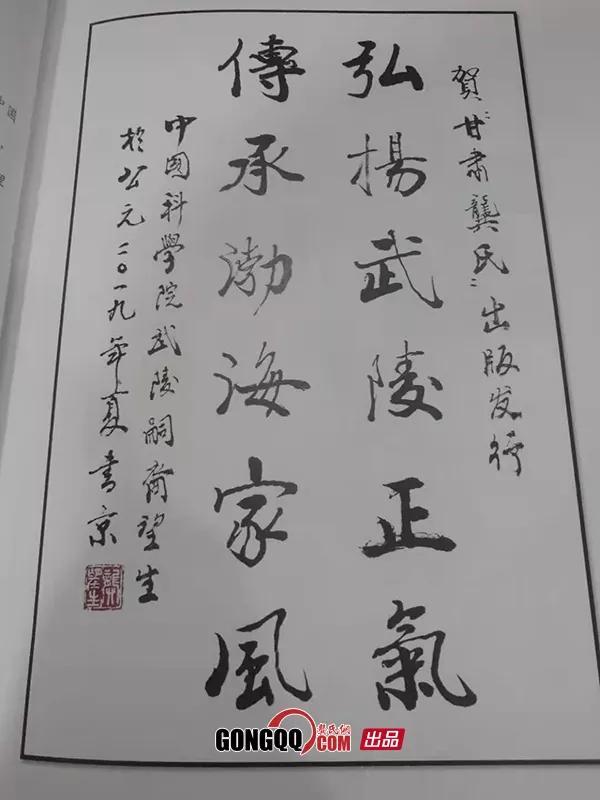 賀“甘肅龔氏”出版发行
弘揚武陵正氣
傳承渤海家風
中国科學院武陵嗣裔望生
於公元二〇一九年夏書京
龔氏網
GONGQQ.COM 出品